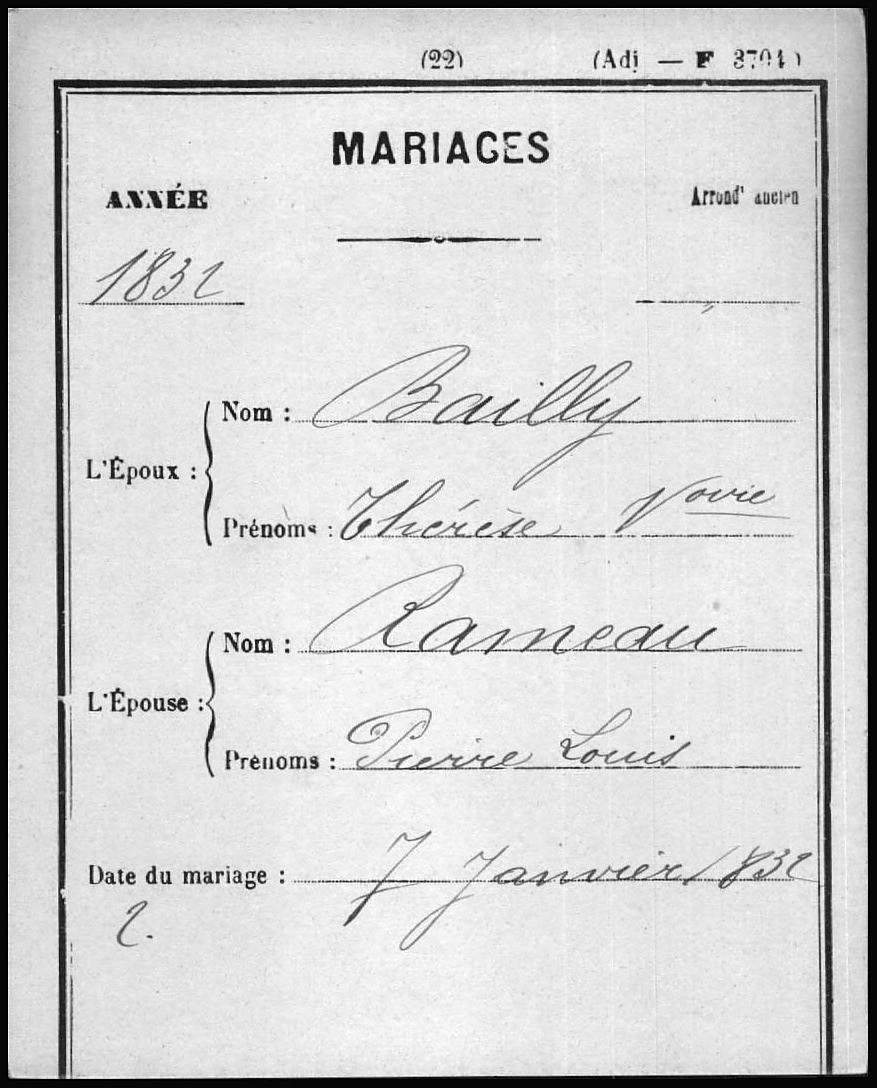 (22) (Adj — F 3704)
MARIAGES
ANNÉE Arrondt ancien
1832
L'Époux :
Nom : Bailly
Prénoms : Thérèse Vovie
L'Épouse :
Nom : Rameau
Prénoms : Pierre Louis
Date du mariage : 7 Janvier 1832
2.